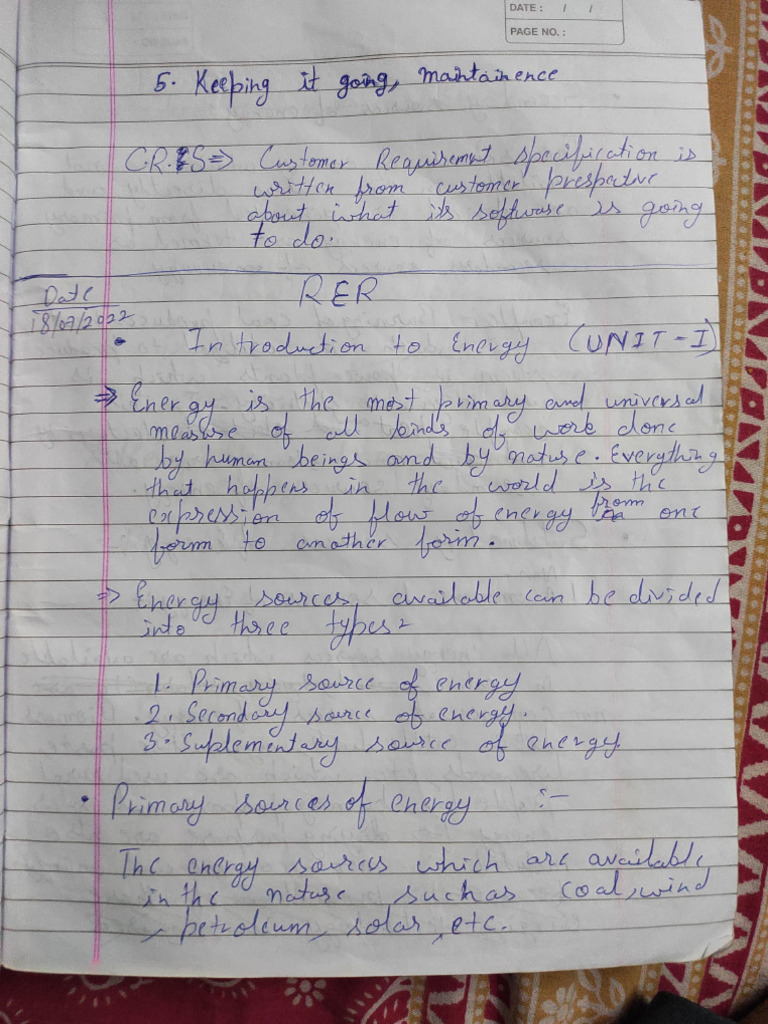 DATE : / /
PAGE NO. :
5. Keeping it going, maintainence
C.R.S => Customer Requirement specification is
written from customer prespective
about what its software is going
to do.
Date
18/07/2022
RER
• Introduction to Energy (UNIT-I)
=> Energy is the most primary and universal
measure of all kinds of work done
by human beings and by nature. Everything
that happens in the world is the
expression of flow of energy from one
form to another form.
=> Energy sources available can be divided
into three types:
1. Primary source of energy
2. Secondary source of energy.
3. Suplementary source of energy.
• Primary sources of energy :-
The energy sources which are available
in the nature such as coal, wind
, petroleum, solar, etc.